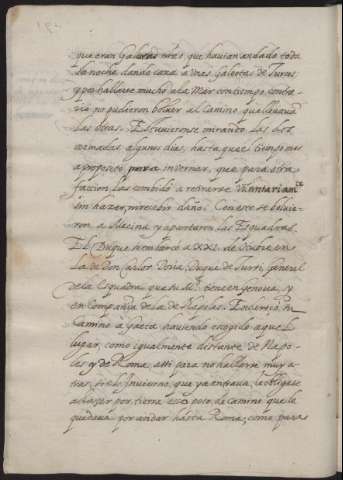 que eran Galeras nras, que havian andado toda
la noche dando caza a unas galeotas de Turcos
y por hallarse mucho a la Mar con tiempo contra-
rio no pudieron bolver al camino que llevavan
las otras. Estuvieronse mirando las dos
Armadas algunos dias, hasta que el tiempo mas
a proposito para invernar, que para otra
faccion las combidó a retirarse voluntariamte
sin hazer, ni recebir daño. Con este se bolvie-
ron a Mecina y apartaron las Esquadras.
El Duque se embarco a XXI. de Octubre en
la de Don Carlos Doria, Duque de Turci, General
de la Esquadra que su Mgd. tiene en Genova, y
en compañia de la de Napoles. Enderecó su
camino a Gaeta haviendo escogido aquel
lugar, como igualmente distante de Napo-
les y de Roma, assi para no hallarse muy a-
tras, si el Invierno, que ya entrava, le obligase
a hazer por tierra esso poco de camino que le
quedava por andar hasta Roma; como para